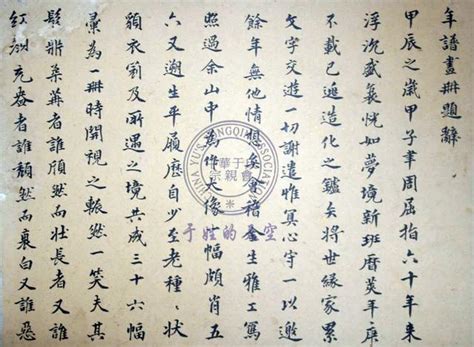 年譜畫冊題辭
甲辰之歲甲子聿周屈指六十年來
浮沉盛衰恍如夢境新班曆蓂年庚
不載已逃造化之鑪矣將世緣家累
文字交遊一切謝遣惟冥心守一以邀
餘年無他情想矣會稽金生雅工寫
照過余山中為作大像一幅頗肖五
六又遡生平履歷自少至老種種狀
貌衣冠及所遇之境共成三十六幅
彙為一冊時開視之輒然一笑夫其
柔荑者誰頎然而壯長者又誰
紅充盎者誰頽然而衰白又誰惡
于姓的空
宗親會